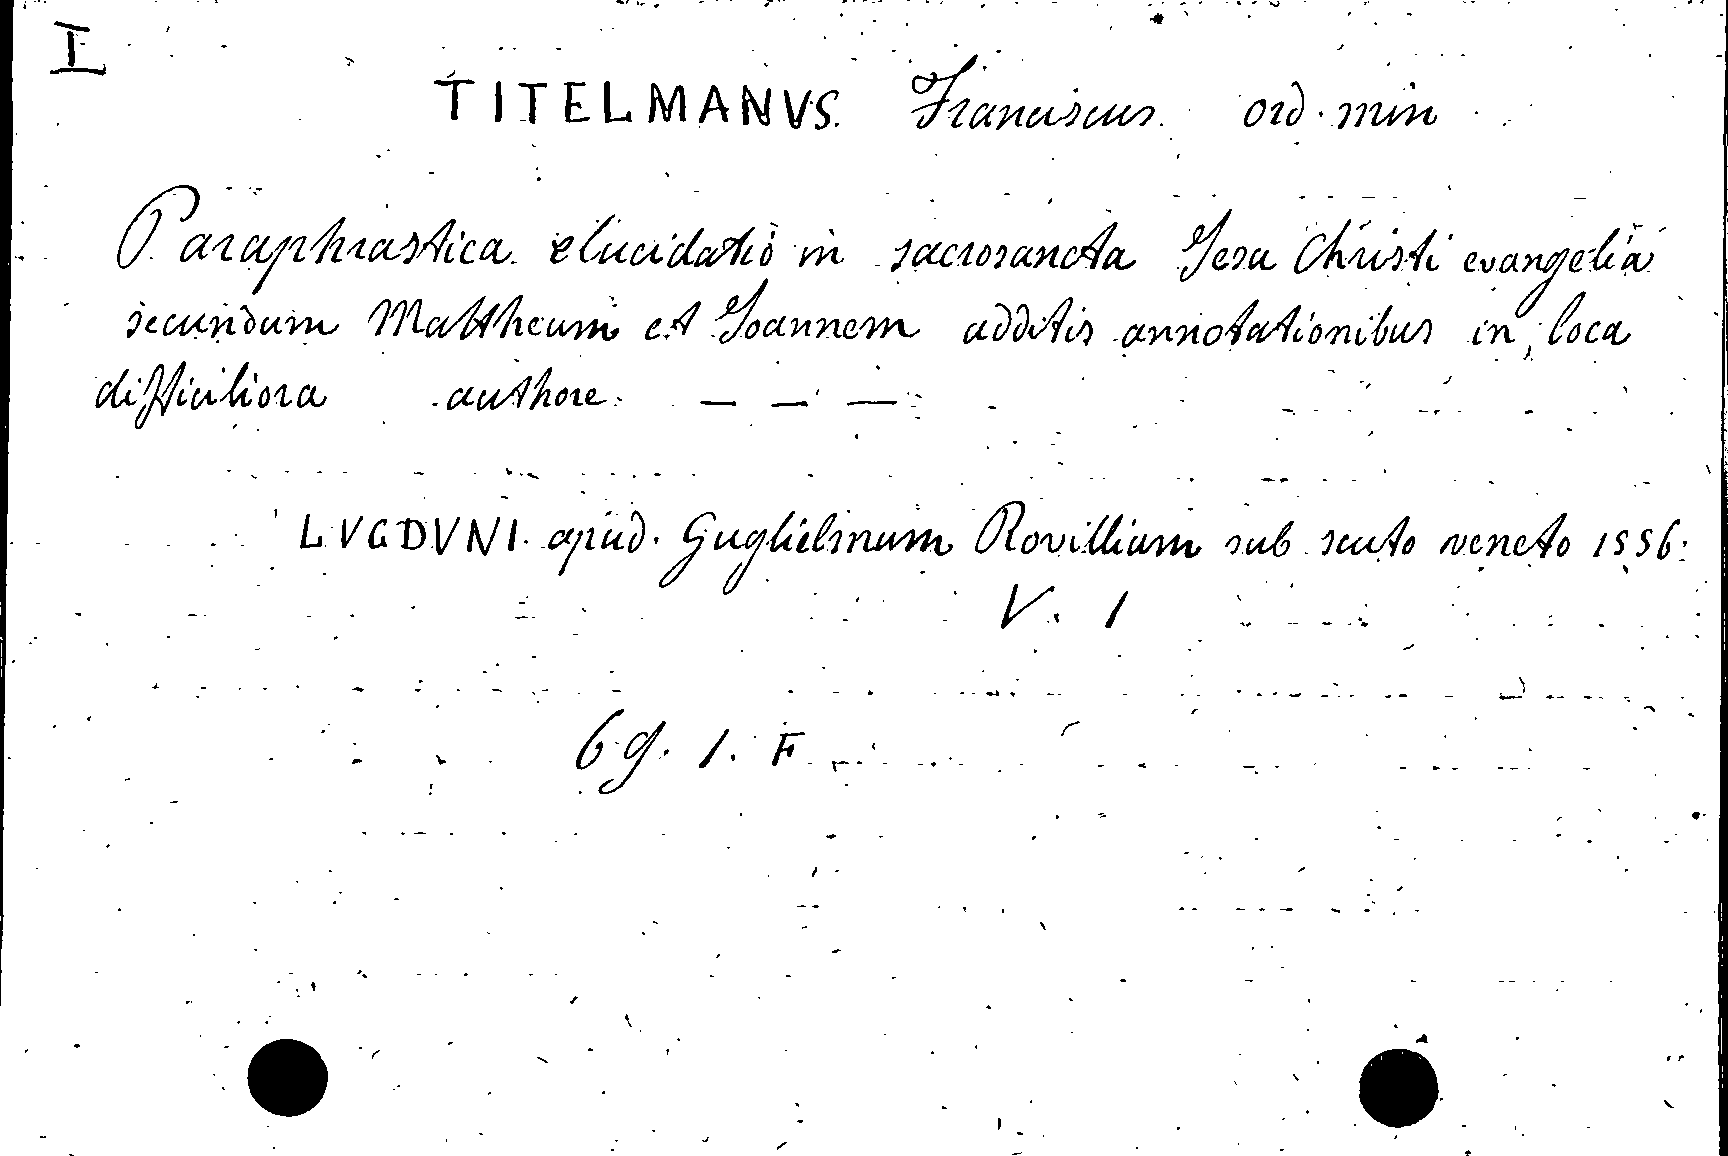 I
TITELMANVS. Franciscus. ord. min
Paraphrastica elucidatio in sacrosancta Jesu Christi evangelia
secundum Mattheum et Joannem additis annotationibus in loca
difficiliora authore — — —
LVGDVNI. apud. Guglielmum Rovillium sub scuto veneto 1556.
V. 1
6 g. 1. F